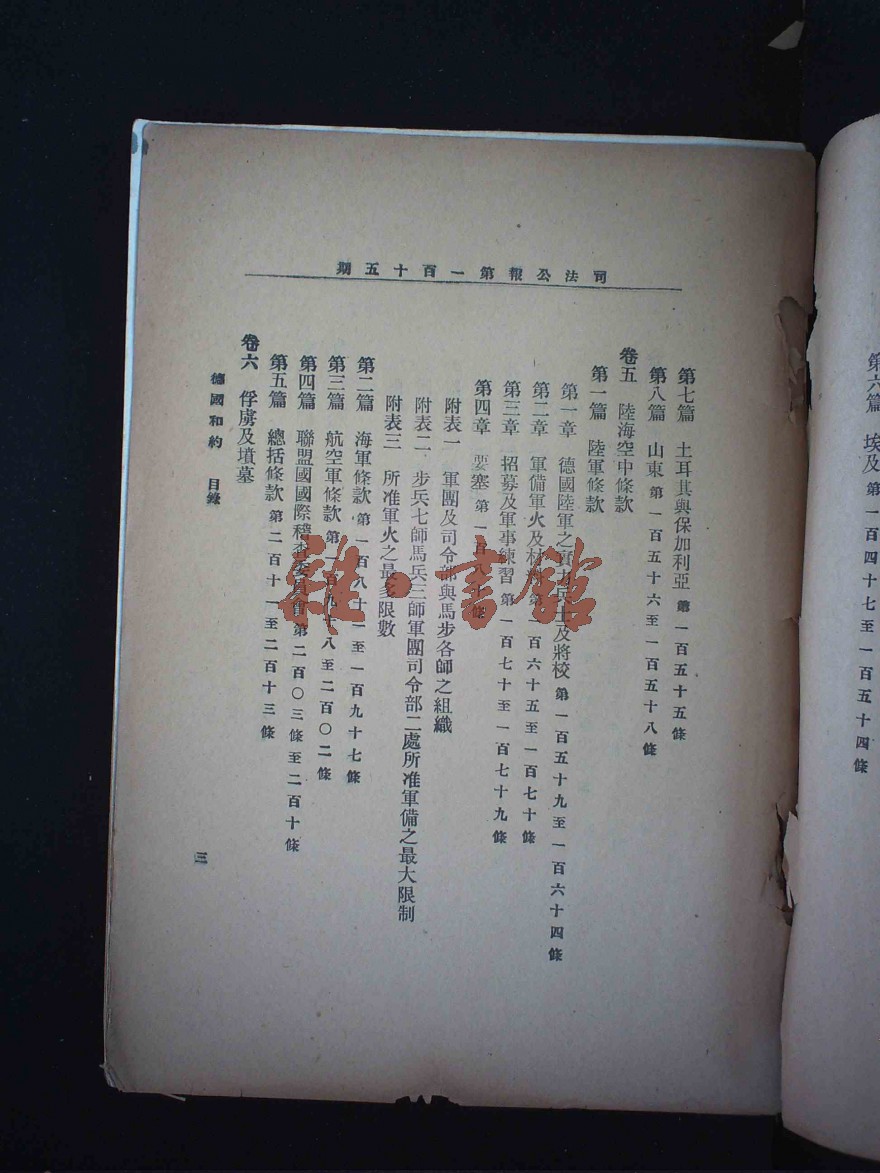 司法公報第一百十五期
第七篇 土耳其與保加利亞 第一百五十五條
第八篇 山東 第一百五十六至一百五十八條
卷五 陸海空中條款
第一篇 陸軍條款
第一章 德國陸軍之實力兵士及將校 第一百五十九至一百六十四條
第二章 軍備軍火及材料 第一百六十五至一百七十條
第三章 招募及軍事練習 第一百七十至一百七十九條
第四章 要塞 第一百八十條
附表一 軍團及司令部與馬步各師之組織
附表二 步兵七師馬兵三師軍團司令部二處所准軍備之最大限制
附表三 所准軍火之最多限數
第二篇 海軍條款 第一百八十一至一百九十七條
第三篇 航空軍條款 第一百九十八至二百〇二條
第四篇 聯盟國國際稽查委員會 第二百〇三條至二百十條
第五篇 總括條款 第二百十一至二百十三條
卷六 俘虜及墳墓
德國和約 目錄
三
雜·書館
第六篇 埃及 第一百四十七至一百五十四條